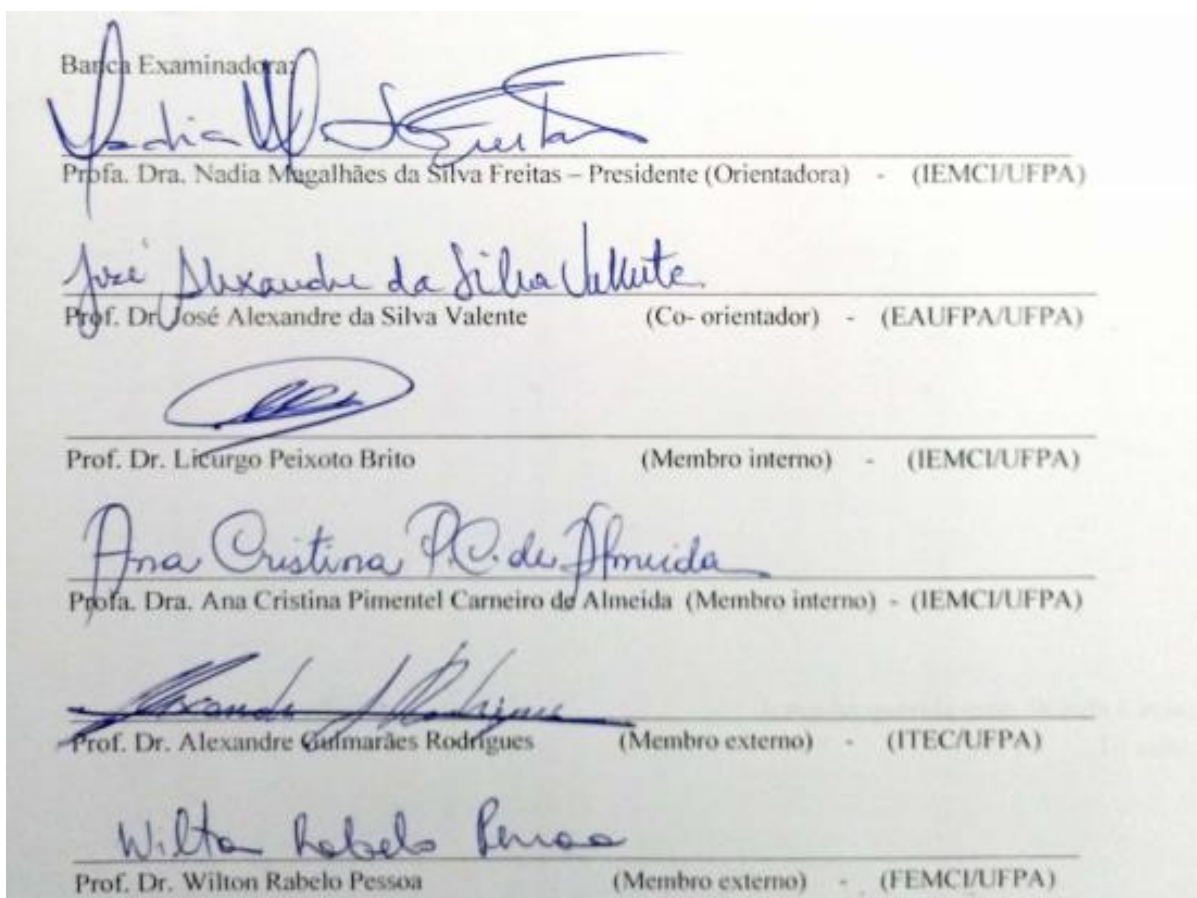 Banca Examinadora:
Nadia M. da S Freitas
Profa. Dra. Nadia Magalhães da Silva Freitas – Presidente (Orientadora) - (IEMCI/UFPA)
José Alexandre da Silva Valente
Prof. Dr. José Alexandre da Silva Valente (Co- orientador) - (EAUFPA/UFPA)
Prof. Dr. Licurgo Peixoto Brito (Membro interno) - (IEMCI/UFPA)
Ana Cristina P.C. de Almeida
Profa. Dra. Ana Cristina Pimentel Carneiro de Almeida (Membro interno) - (IEMCI/UFPA)
Alexandre Rodrigues
Prof. Dr. Alexandre Guimarães Rodrigues (Membro externo) - (ITEC/UFPA)
Wilton Rabelo Pessoa
Prof. Dr. Wilton Rabelo Pessoa (Membro externo) - (FEMCI/UFPA)